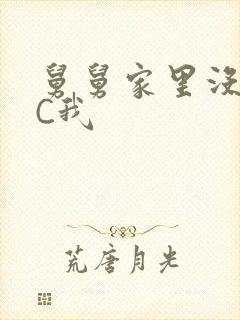 舅舅家里没
C我
荒唐月光